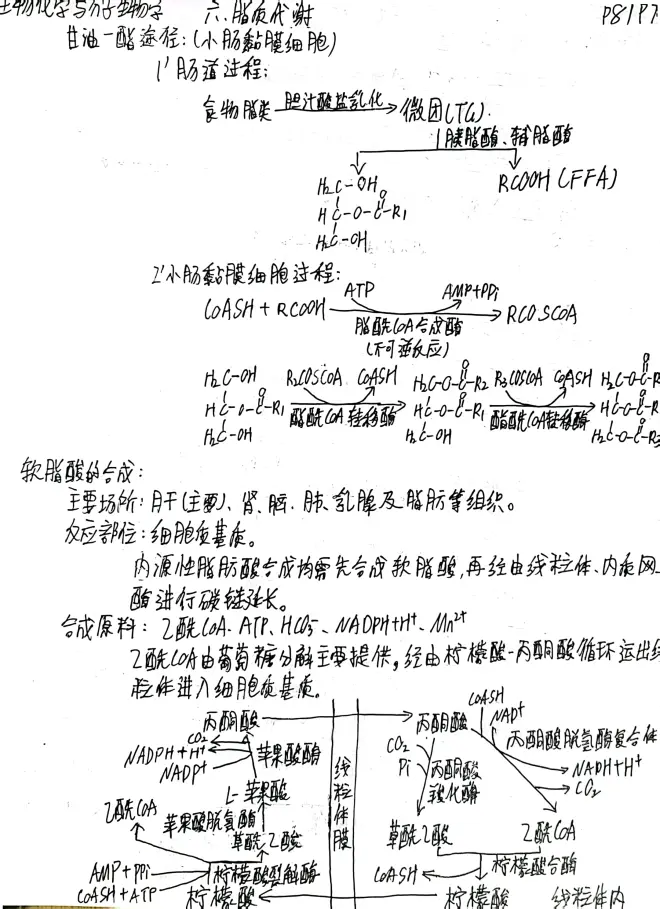 生物化学与分子生物学 六、脂质代谢 P81 P7
甘油一酯途径:(小肠黏膜细胞)
1' 肠道过程:
食物脂类 胆汁酸盐乳化 微团(TG)
胰脂酶、辅脂酶
H₂C-OH
HC-O-C-R₁
O
H₂C-OH
RCOOH(FFA)
2' 小肠黏膜细胞过程:
ATP AMP+PPi
CoASH + RCOOH RCOSCOA
脂酰CoA合成酶
(不可逆反应)
H₂C-OH R₂COSCOA CoASH H₂C-O-C-R₂ R₃COSCOA CoASH H₂C-O-C-R
HC-O-C-R₁ 酯酰CoA转移酶 HC-O-C-R₁ 酯酰CoA转移酶 HC-O-C-R
H₂C-OH H₂C-OH H₂C-O-C-R₃
软脂酸的合成:
主要场所:肝(主要)、肾、脑、肺、乳腺及脂肪等组织。
反应部位:细胞质基质。
内源性脂肪酸合成均需先合成软脂酸,再经由线粒体、内质网
酶进行碳链延长。
合成原料:乙酰CoA、ATP、HCO₃⁻、NADPH+H⁺、Mn²⁺
乙酰CoA由葡萄糖分解主要提供,经由柠檬酸-丙酮酸循环运出线
粒体进入细胞质基质。
丙酮酸 丙酮酸 CoASH
NAD⁺
CO₂ 苹果酸酶 CO₂ 丙酮酸脱氢酶复合体
NADPH+H⁺ Pi 丙酮酸 NADH+H⁺
NADP⁺ 羧化酶 CO₂
L-苹果酸 线粒体膜
乙酰CoA 苹果酸脱氢酶
草酰乙酸 草酰乙酸 乙酰CoA
AMP+PPi 柠檬酸裂解酶 CoASH 柠檬酸合酶
CoASH+ATP
柠檬酸 柠檬酸 线粒体内